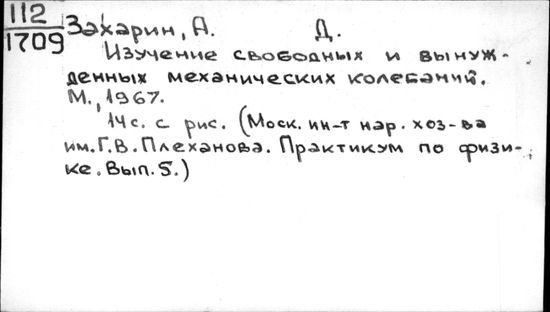 112
1709
Захарин, А. Д.
Изучение свободных и вынуж-
денных механических колебаний.
М., 1967.
14 с. с рис. (Моск. ин-т нар. хоз-ва
им. Г.В. Плеханова. Практикум по физи-
ке. Вып. 5.)